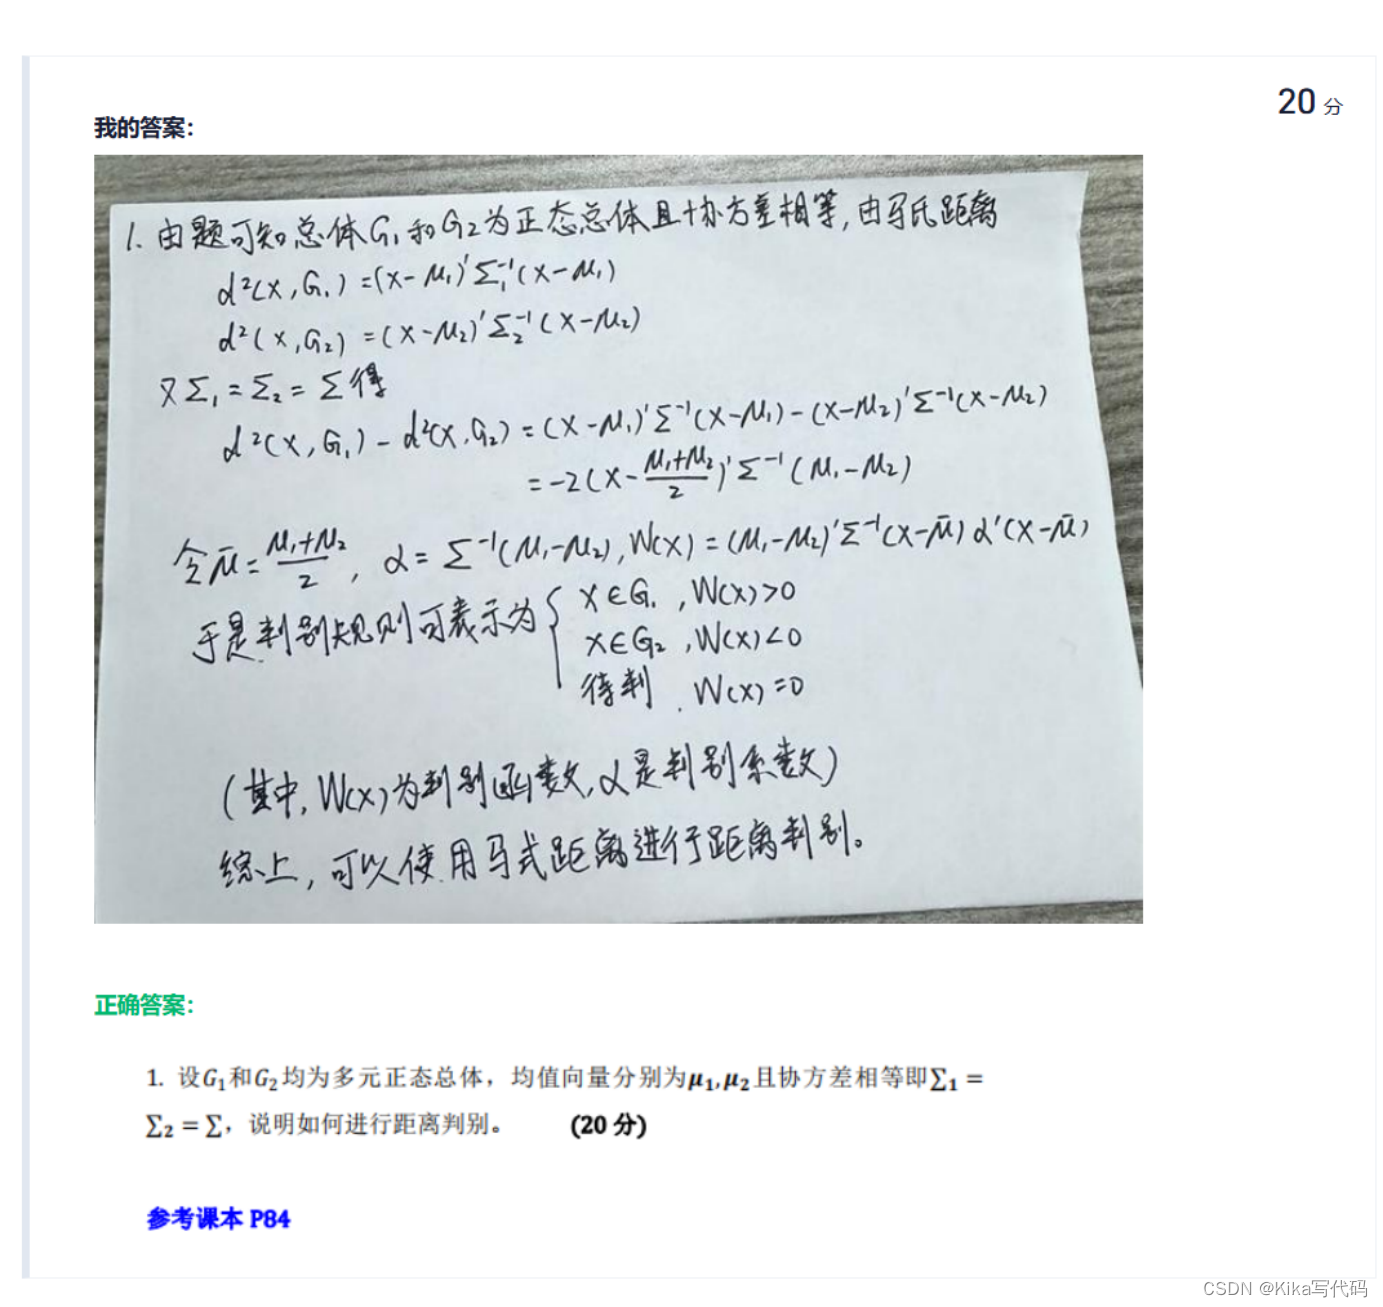 20 分
我的答案:
1. 由题可知总体G₁和G₂为正态总体且协方差相等,由马氏距离
d²(X,G₁)=(X-μ₁)'Σ₁⁻¹(X-μ₁)
d²(X,G₂)=(X-μ₂)'Σ₂⁻¹(X-μ₂)
又Σ₁=Σ₂=Σ得
d²(X,G₁)-d²(X,G₂)=(X-μ₁)'Σ⁻¹(X-μ₁)-(X-μ₂)'Σ⁻¹(X-μ₂)
=-2(X-(μ₁+μ₂)/2)'Σ⁻¹(μ₁-μ₂)
令μ̄=(μ₁+μ₂)/2, α=Σ⁻¹(μ₁-μ₂),W(X)=(μ₁-μ₂)'Σ⁻¹(X-μ̄)α'(X-μ̄)
于是判别规则可表示为{ X∈G₁,W(X)>0
X∈G₂,W(X)<0
待判.W(X)=0
(其中,W(X)为判别函数,α是判别系数)
综上,可以使用马式距离进行距离判别。
正确答案:
1. 设G₁和G₂均为多元正态总体，均值向量分别为μ₁,μ₂且协方差相等即Σ₁ =
Σ₂ = Σ，说明如何进行距离判别。 (20 分)
参考课本 P84
CSDN @Kika写代码